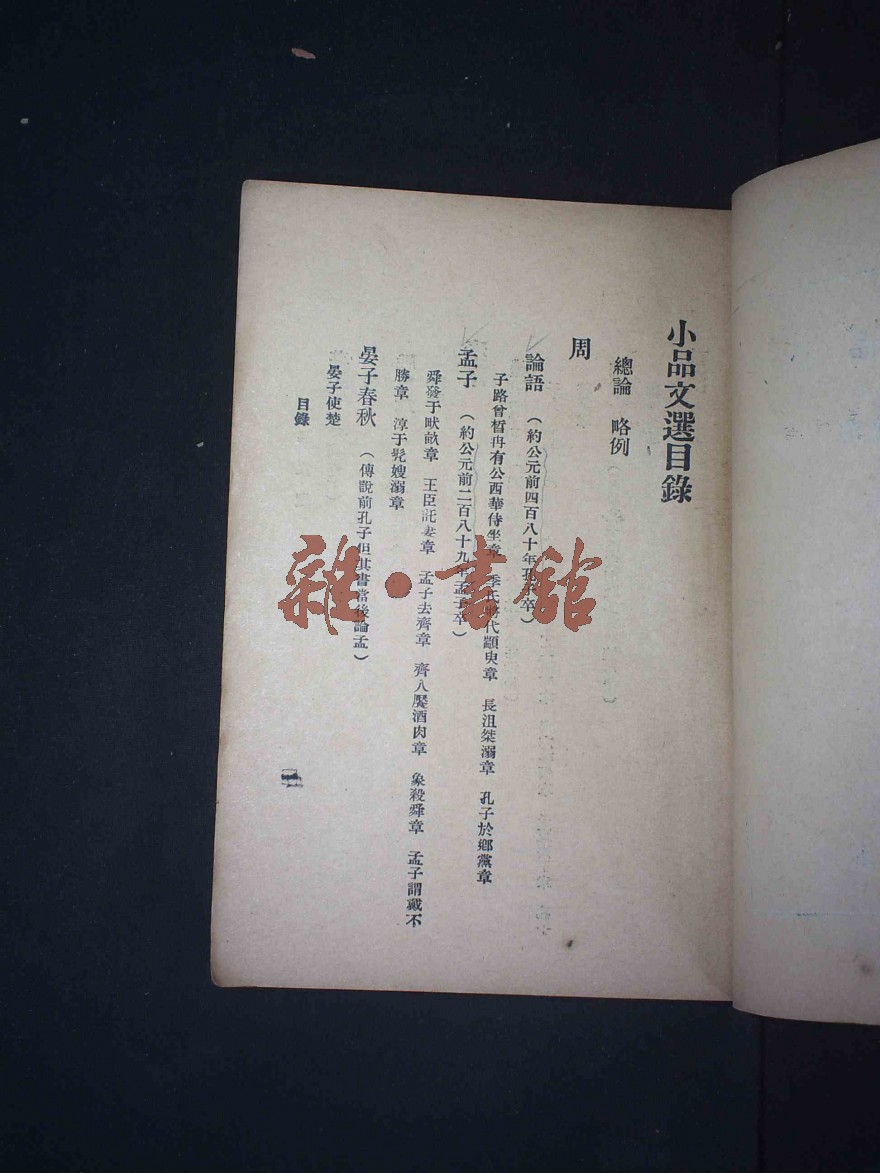 小品文選目錄
總論 略例
周
論語 (約公元前四百八十年孔子卒)
子路曾皙冉有公西華侍坐章 季氏將伐顓臾章 長沮桀溺章 孔子於鄉黨章
孟子 (約公元前二百八十九年孟子卒)
舜發于畎畝章 王臣託妻章 孟子去齊章 齊人饜酒肉章 象殺舜章 孟子謂戴不
勝章 淳于髡嫂溺章
晏子春秋 (傳說前孔子但其書當後論孟)
晏子使楚
目錄
雜·書館